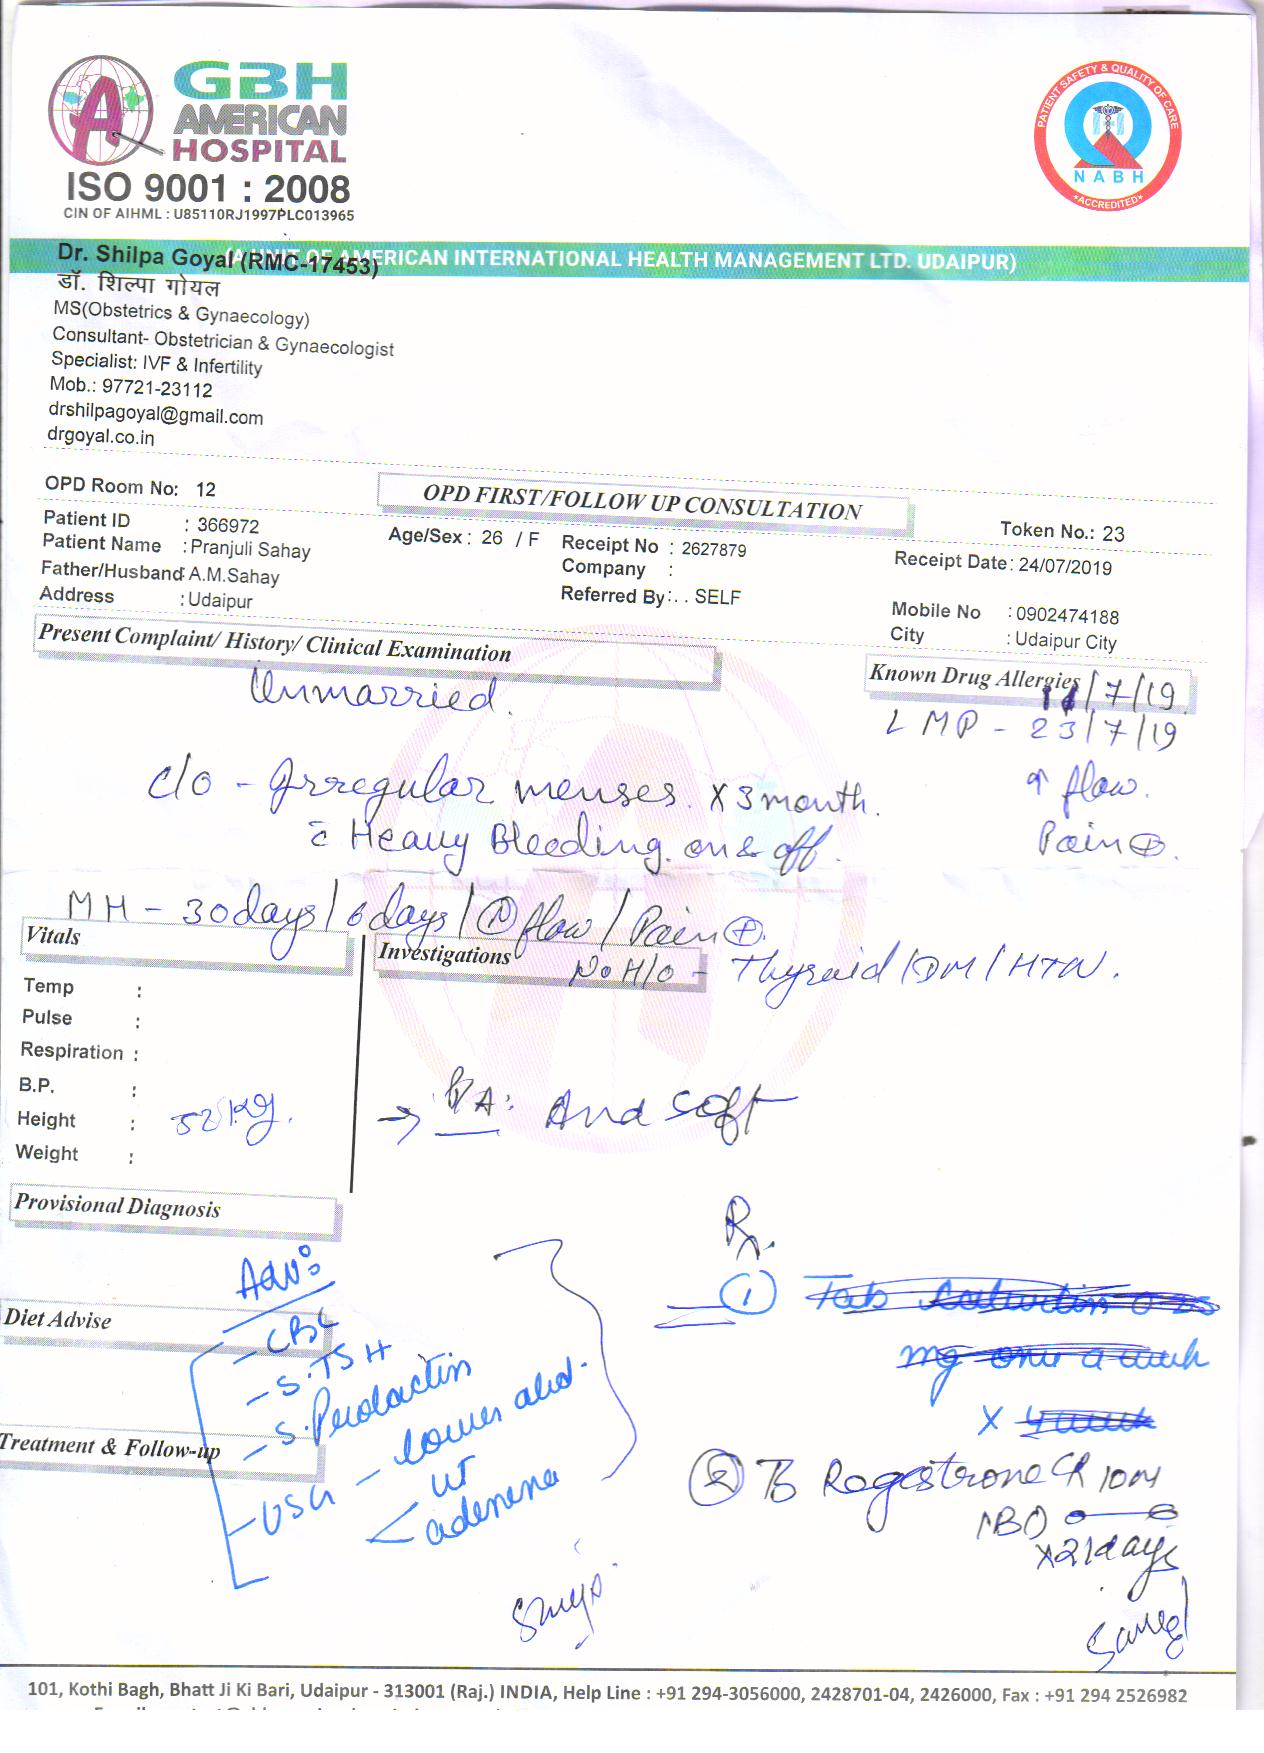 GBH
AMERICAN
HOSPITAL
ISO 9001 : 2008
CIN OF AIHML : U85110RJ1997PLC013965
PATIENT SAFETY & QUALITY OF CARE
NABH
ACCREDITED
(A UNIT OF AMERICAN INTERNATIONAL HEALTH MANAGEMENT LTD. UDAIPUR)
Dr. Shilpa Goyal (RMC-17453)
डॉ. शिल्पा गोयल
MS(Obstetrics & Gynaecology)
Consultant- Obstetrician & Gynaecologist
Specialist: IVF & Infertility
Mob.: 97721-23112
drshilpagoyal@gmail.com
drgoyal.co.in
OPD Room No: 12
OPD FIRST/FOLLOW UP CONSULTATION
Token No.: 23
Patient ID : 366972
Age/Sex : 26 / F
Receipt No : 2627879
Receipt Date: 24/07/2019
Patient Name : Pranjuli Sahay
Company :
Father/Husband: A.M.Sahay
Referred By: . . SELF
Mobile No : 0902474188
Address : Udaipur
City : Udaipur City
Present Complaint/ History/ Clinical Examination
Known Drug Allergies
Unmarried.
11/7/19
LMP - 23/7/19
c/o - Irregular menses. x 3 month.
↑ flow.
c̄ Heavy Bleeding. on & off.
Pain ⊕.
MH - 30 days / 6 days / (N) flow / Pain ⊕.
Vitals
Investigations
No H/o - Thyroid / DM / HTN.
Temp :
Pulse :
Respiration :
B.P. :
Height : 52 kg.
Weight :
→ P/A: And soft
Provisional Diagnosis
Rx.
Adv:
① Tab 0.25
mg once a week
x 4 week
Diet Advise
- CBC
- S. TSH
- S. Prolactin
Treatment & Follow-up
- USG - lower abd.
< UT
adenexa
② Tb Regestrone CR 10 M
1 BD
x 21 days
101, Kothi Bagh, Bhatt Ji Ki Bari, Udaipur - 313001 (Raj.) INDIA, Help Line : +91 294-3056000, 2428701-04, 2426000, Fax : +91 294 2526982